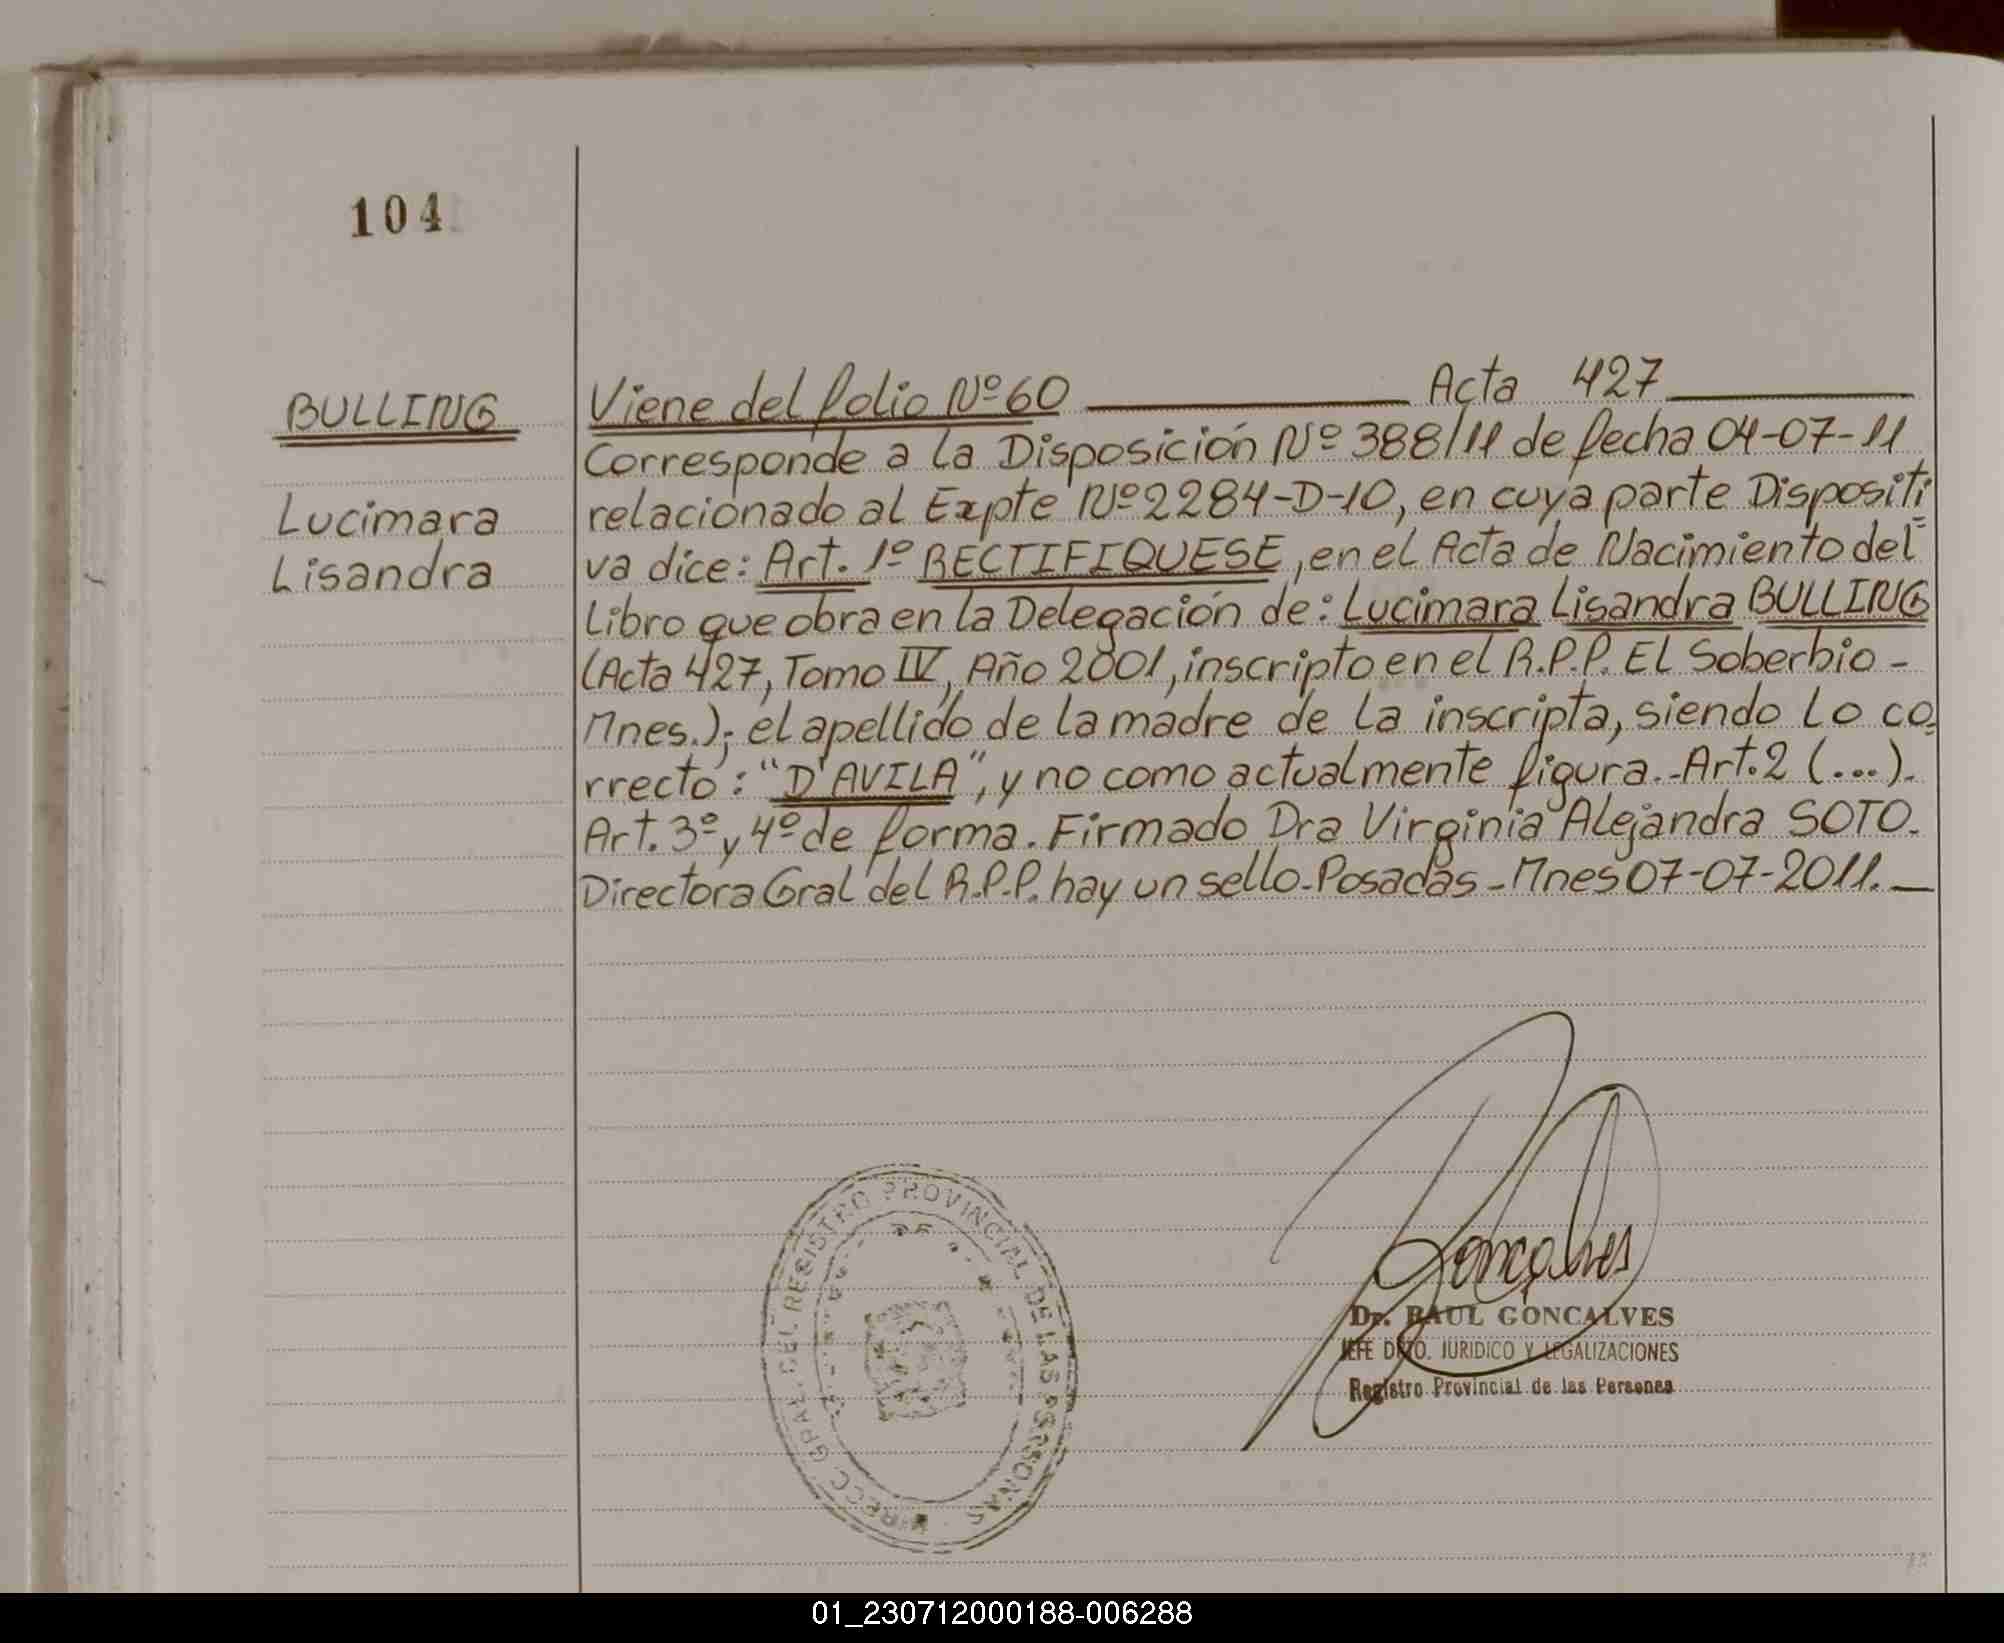 104
BULLING
Lucimara
Lisandra
Viene del folio Nº 60 Acta 427
Corresponde a la Disposición Nº 388/11 de fecha 04-07-11
relacionado al Expte Nº 2284-D-10, en cuya parte Dispositi
va dice: Art. 1º RECTIFIQUESE, en el Acta de Nacimiento del
Libro que obra en la Delegación de: Lucimara Lisandra BULLING
(Acta 427, Tomo IV, Año 2001, inscripto en el R.P.P. El Soberbio-
Mnes.); el apellido de la madre de la inscripta, siendo lo co-
rrecto: "D'AVILA", y no como actualmente figura.-Art.2 (...).
Art. 3º y 4º de forma. Firmado Dra Virginia Alejandra SOTO.
Directora Gral del R.P.P. hay un sello-Posadas-Mnes 07-07-2011.
DIRECC. GRAL. DEL REGISTRO PROVINCIAL DE LAS PERSONAS
Goncalves
Dr. RAUL GONCALVES
JEFE DPTO. JURIDICO Y LEGALIZACIONES
Registro Provincial de las Personas
01_230712000188-006288